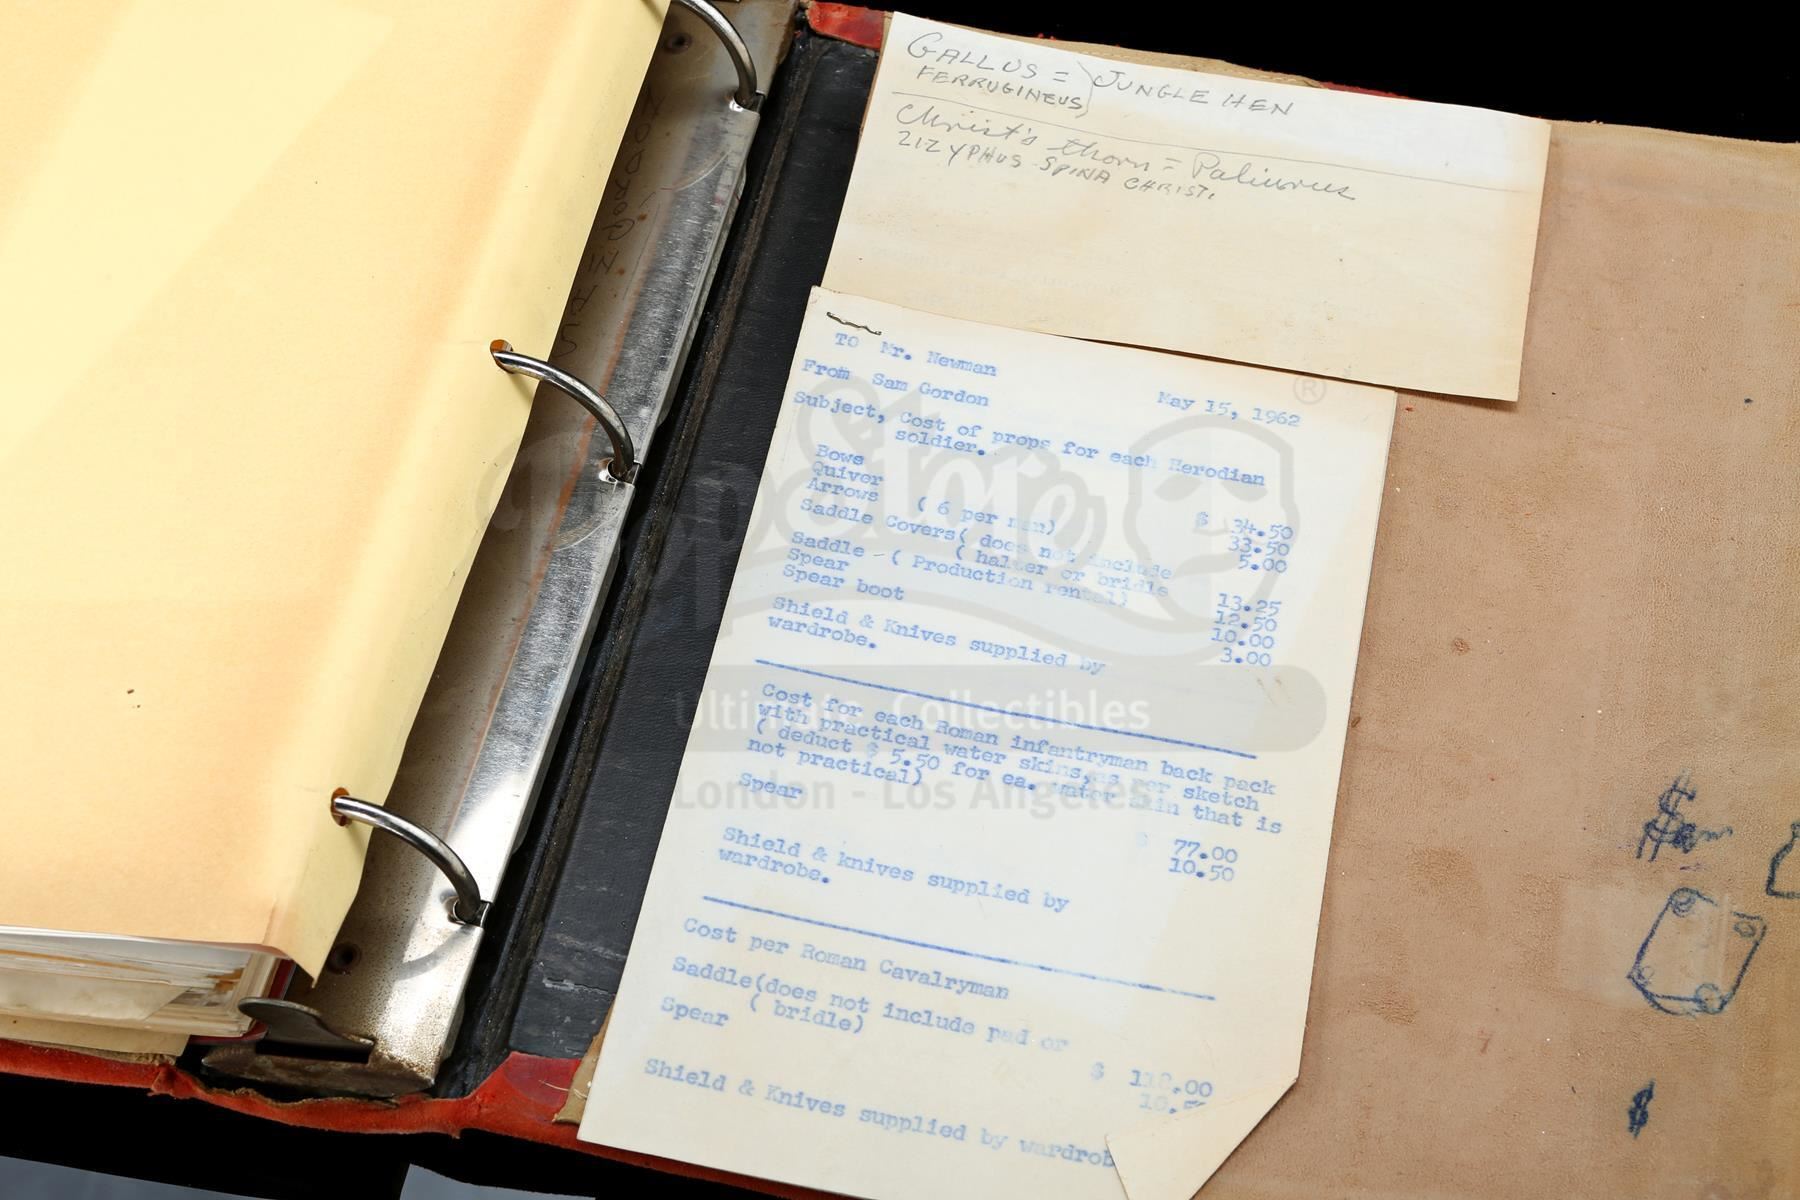 GALLUS = JUNGLE HEN
FERRUGINEUS
Christ's thorn = Paliurus
ZIZYPHUS SPINA CHRISTI
TO Mr. Newman
From Sam Gordon
May 15, 1962
Subject, Cost of props for each Herodian
soldier.
Bows $ 34.50
Quiver 33.50
Arrows ( 6 per man) 5.00
Saddle Covers( does not include
( halter or bridle 13.25
Saddle - ( Production rental) 12.50
Spear 10.00
Spear boot 3.00
Shield & Knives supplied by
wardrobe.
Cost for each Roman infantryman back pack
with practical water skins,as per sketch
( deduct $ 5.50 for ea. water skin that is
not practical) $ 77.00
Spear 10.50
Shield & knives supplied by
wardrobe.
Cost per Roman Cavalryman
Saddle(does not include pad or
( bridle) $
Spear
Shield & Knives supplied by wardrob
$am
$
PropStore ®
Ultimate Collectibles
London - Los Angeles